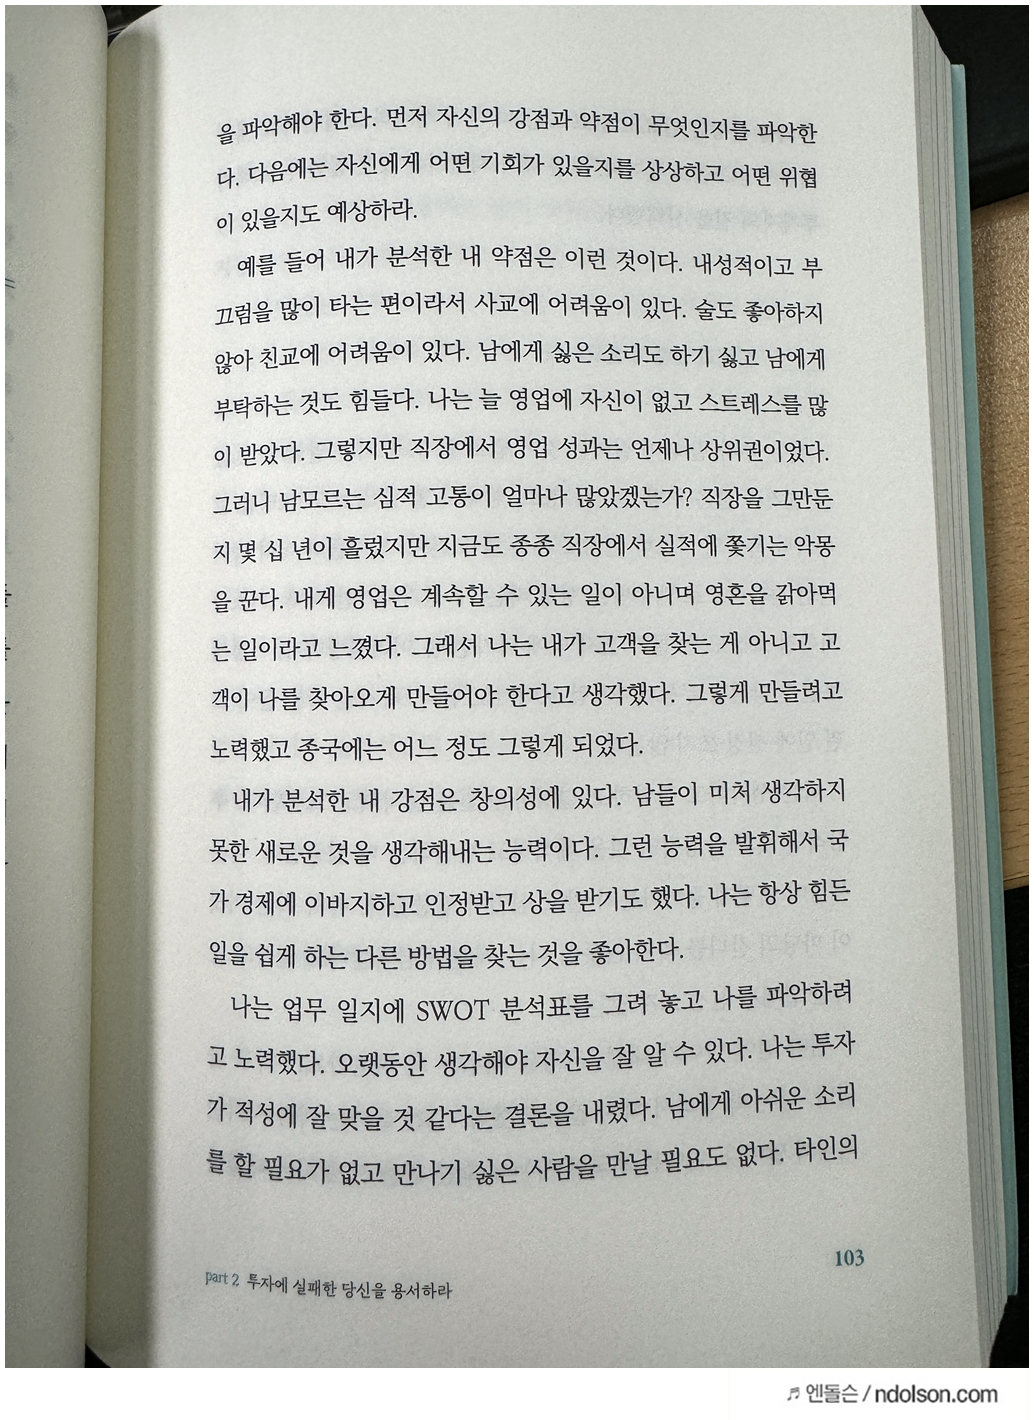 을 파악해야 한다. 먼저 자신의 강점과 약점이 무엇인지를 파악한
다. 다음에는 자신에게 어떤 기회가 있을지를 상상하고 어떤 위협
이 있을지도 예상하라.
예를 들어 내가 분석한 내 약점은 이런 것이다. 내성적이고 부
끄럼을 많이 타는 편이라서 사교에 어려움이 있다. 술도 좋아하지
않아 친교에 어려움이 있다. 남에게 싫은 소리도 하기 싫고 남에게
부탁하는 것도 힘들다. 나는 늘 영업에 자신이 없고 스트레스를 많
이 받았다. 그렇지만 직장에서 영업 성과는 언제나 상위권이었다.
그러니 남모르는 심적 고통이 얼마나 많았겠는가? 직장을 그만둔
지 몇 십 년이 흘렀지만 지금도 종종 직장에서 실적에 쫓기는 악몽
을 꾼다. 내게 영업은 계속할 수 있는 일이 아니며 영혼을 갉아먹
는 일이라고 느꼈다. 그래서 나는 내가 고객을 찾는 게 아니고 고
객이 나를 찾아오게 만들어야 한다고 생각했다. 그렇게 만들려고
노력했고 종국에는 어느 정도 그렇게 되었다.
내가 분석한 내 강점은 창의성에 있다. 남들이 미처 생각하지
못한 새로운 것을 생각해내는 능력이다. 그런 능력을 발휘해서 국
가 경제에 이바지하고 인정받고 상을 받기도 했다. 나는 항상 힘든
일을 쉽게 하는 다른 방법을 찾는 것을 좋아한다.
나는 업무 일지에 SWOT 분석표를 그려 놓고 나를 파악하려
고 노력했다. 오랫동안 생각해야 자신을 잘 알 수 있다. 나는 투자
가 적성에 잘 맞을 것 같다는 결론을 내렸다. 남에게 아쉬운 소리
를 할 필요가 없고 만나기 싫은 사람을 만날 필요도 없다. 타인의
103
part 2 투자에 실패한 당신을 용서하라
♬ 엔돌슨 / ndolson.com